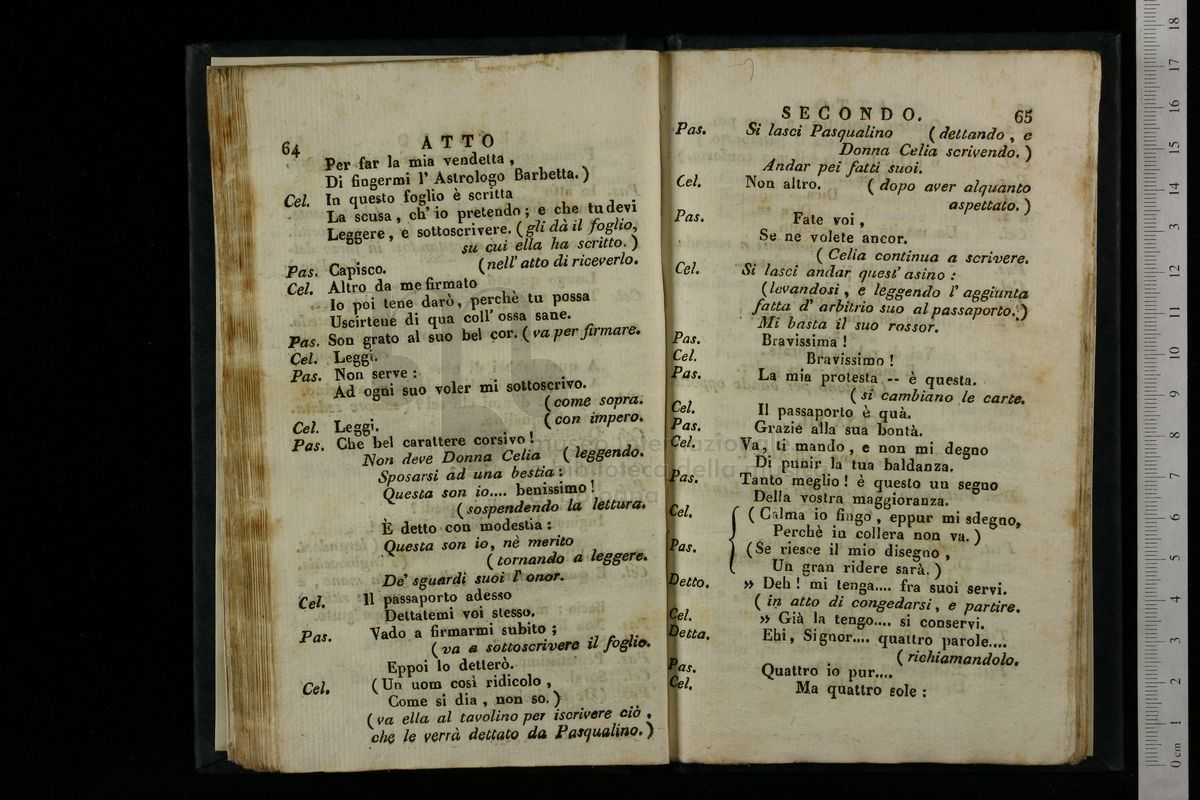 64 ATTO
Per far la mia vendetta ,
Di fingermi l' Astrologo Barbetta. )
Cel. In questo foglio è scritta
La scusa , ch' io pretendo ; e che tu devi
Leggere , e sottoscrivere. ( gli dà il foglio,
su cui ella ha scritto. )
Pas. Capisco. ( nell' atto di riceverlo.
Cel. Altro da me firmato
Io poi tene darò, perchè tu possa
Uscirtene di qua coll' ossa sane.
Pas. Son grato al suo bel cor. ( va per firmare.
Cel. Leggi.
Pas. Non serve :
Ad ogni suo voler mi sottoscrivo.
( come sopra.
Cel. Leggi. ( con impero.
Pas. Che bel carattere corsivo !
Non deve Donna Celia ( leggendo.
Sposarsi ad una bestia :
Questa son io.... benissimo !
( sospendendo la lettura.
È detto con modestia :
Questa son io, nè merito
( tornando a leggere.
De' sguardi suoi l' onor.
Cel. Il passaporto adesso
Dettatemi voi stesso.
Pas. Vado a firmarmi subito ;
( va a sottoscrivere il foglio.
Eppoi lo detterò.
Cel. ( Un uom così ridicolo ,
Come si dia , non so. )
( va ella al tavolino per iscrivere ciò ,
che le verrà dettato da Pasqualino. )
SECONDO. 65
Pas. Si lasci Pasqualino ( dettando , e
Donna Celia scrivendo. )
Andar pei fatti suoi.
Cel. Non altro. ( dopo aver alquanto
aspettato. )
Pas. Fate voi ,
Se ne volete ancor.
( Celia continua a scrivere.
Cel. Si lasci andar quest' asino :
( levandosi , e leggendo l' aggiunta
fatta d' arbitrio suo al passaporto. )
Mi basta il suo rossor.
Pas. Bravissima !
Cel. Bravissimo !
Pas. La mia protesta -- è questa.
( si cambiano le carte.
Cel. Il passaporto è quà.
Pas. Grazie alla sua bontà.
Cel. Va, ti mando , e non mi degno
Di punir la tua baldanza.
Pas. Tanto meglio ! è questo un segno
Della vostra maggioranza.
Cel. ( Calma io fingo , eppur mi sdegno,
Perchè in collera non va. )
Pas. ( Se riesce il mio disegno ,
Un gran ridere sarà. )
Detto. » Deh ! mi tenga.... fra suoi servi.
( in atto di congedarsi , e partire.
Cel. » Già la tengo.... si conservi.
Detta. Ehi, Signor.... quattro parole....
( richiamandolo.
Pas. Quattro io pur....
Cel. Ma quattro sole :
museo internazionale
biblioteca della musica
0 cm 1 2 3 4 5 6 7 8 9 10 11 12 13 14 15 16 17 18